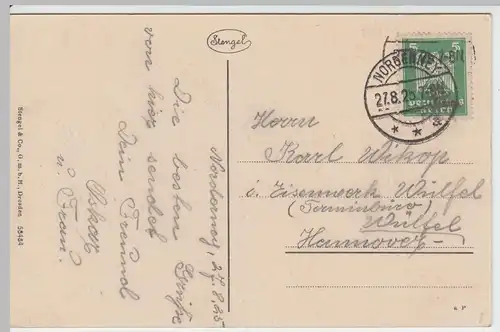 Stengel
Norderney, 27.8.25
Die besten Grüße
von hier sendet
Dein Freund
Oskar
u. Frau.
Stengel & Co., G. m. b. H., Dresden 58484
NORDERNEY
27.8.25
5 5
DEUTSCHES
REICH
Herrn
Karl Wikop
i. Eisenwerk Wülfel
(Terminbüro)
Wülfel
Hannover